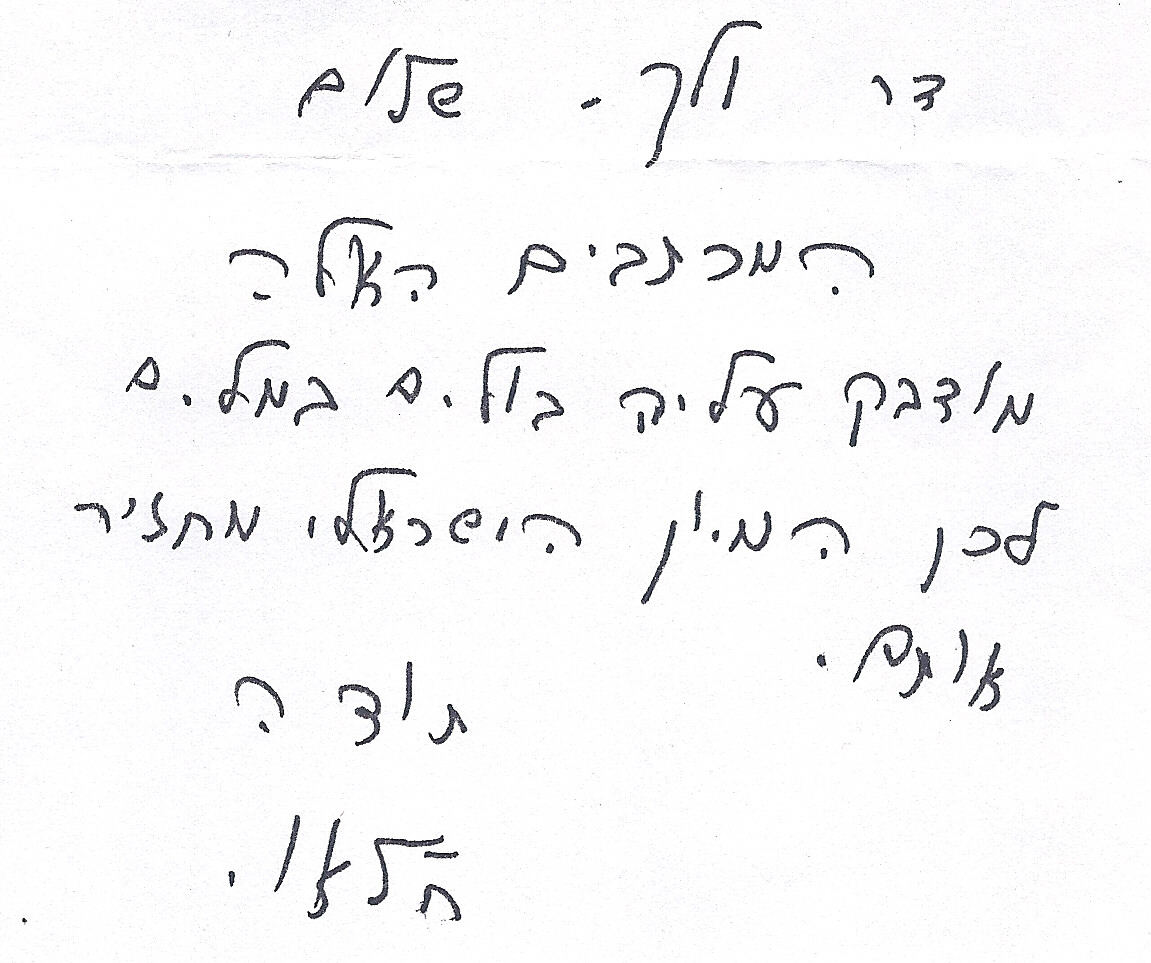 דר ולך - שלום
המכתבים האלה
מודבק עליה בולים במלים
לכן המיון הישראלי מחזיר
אותם.
תודה